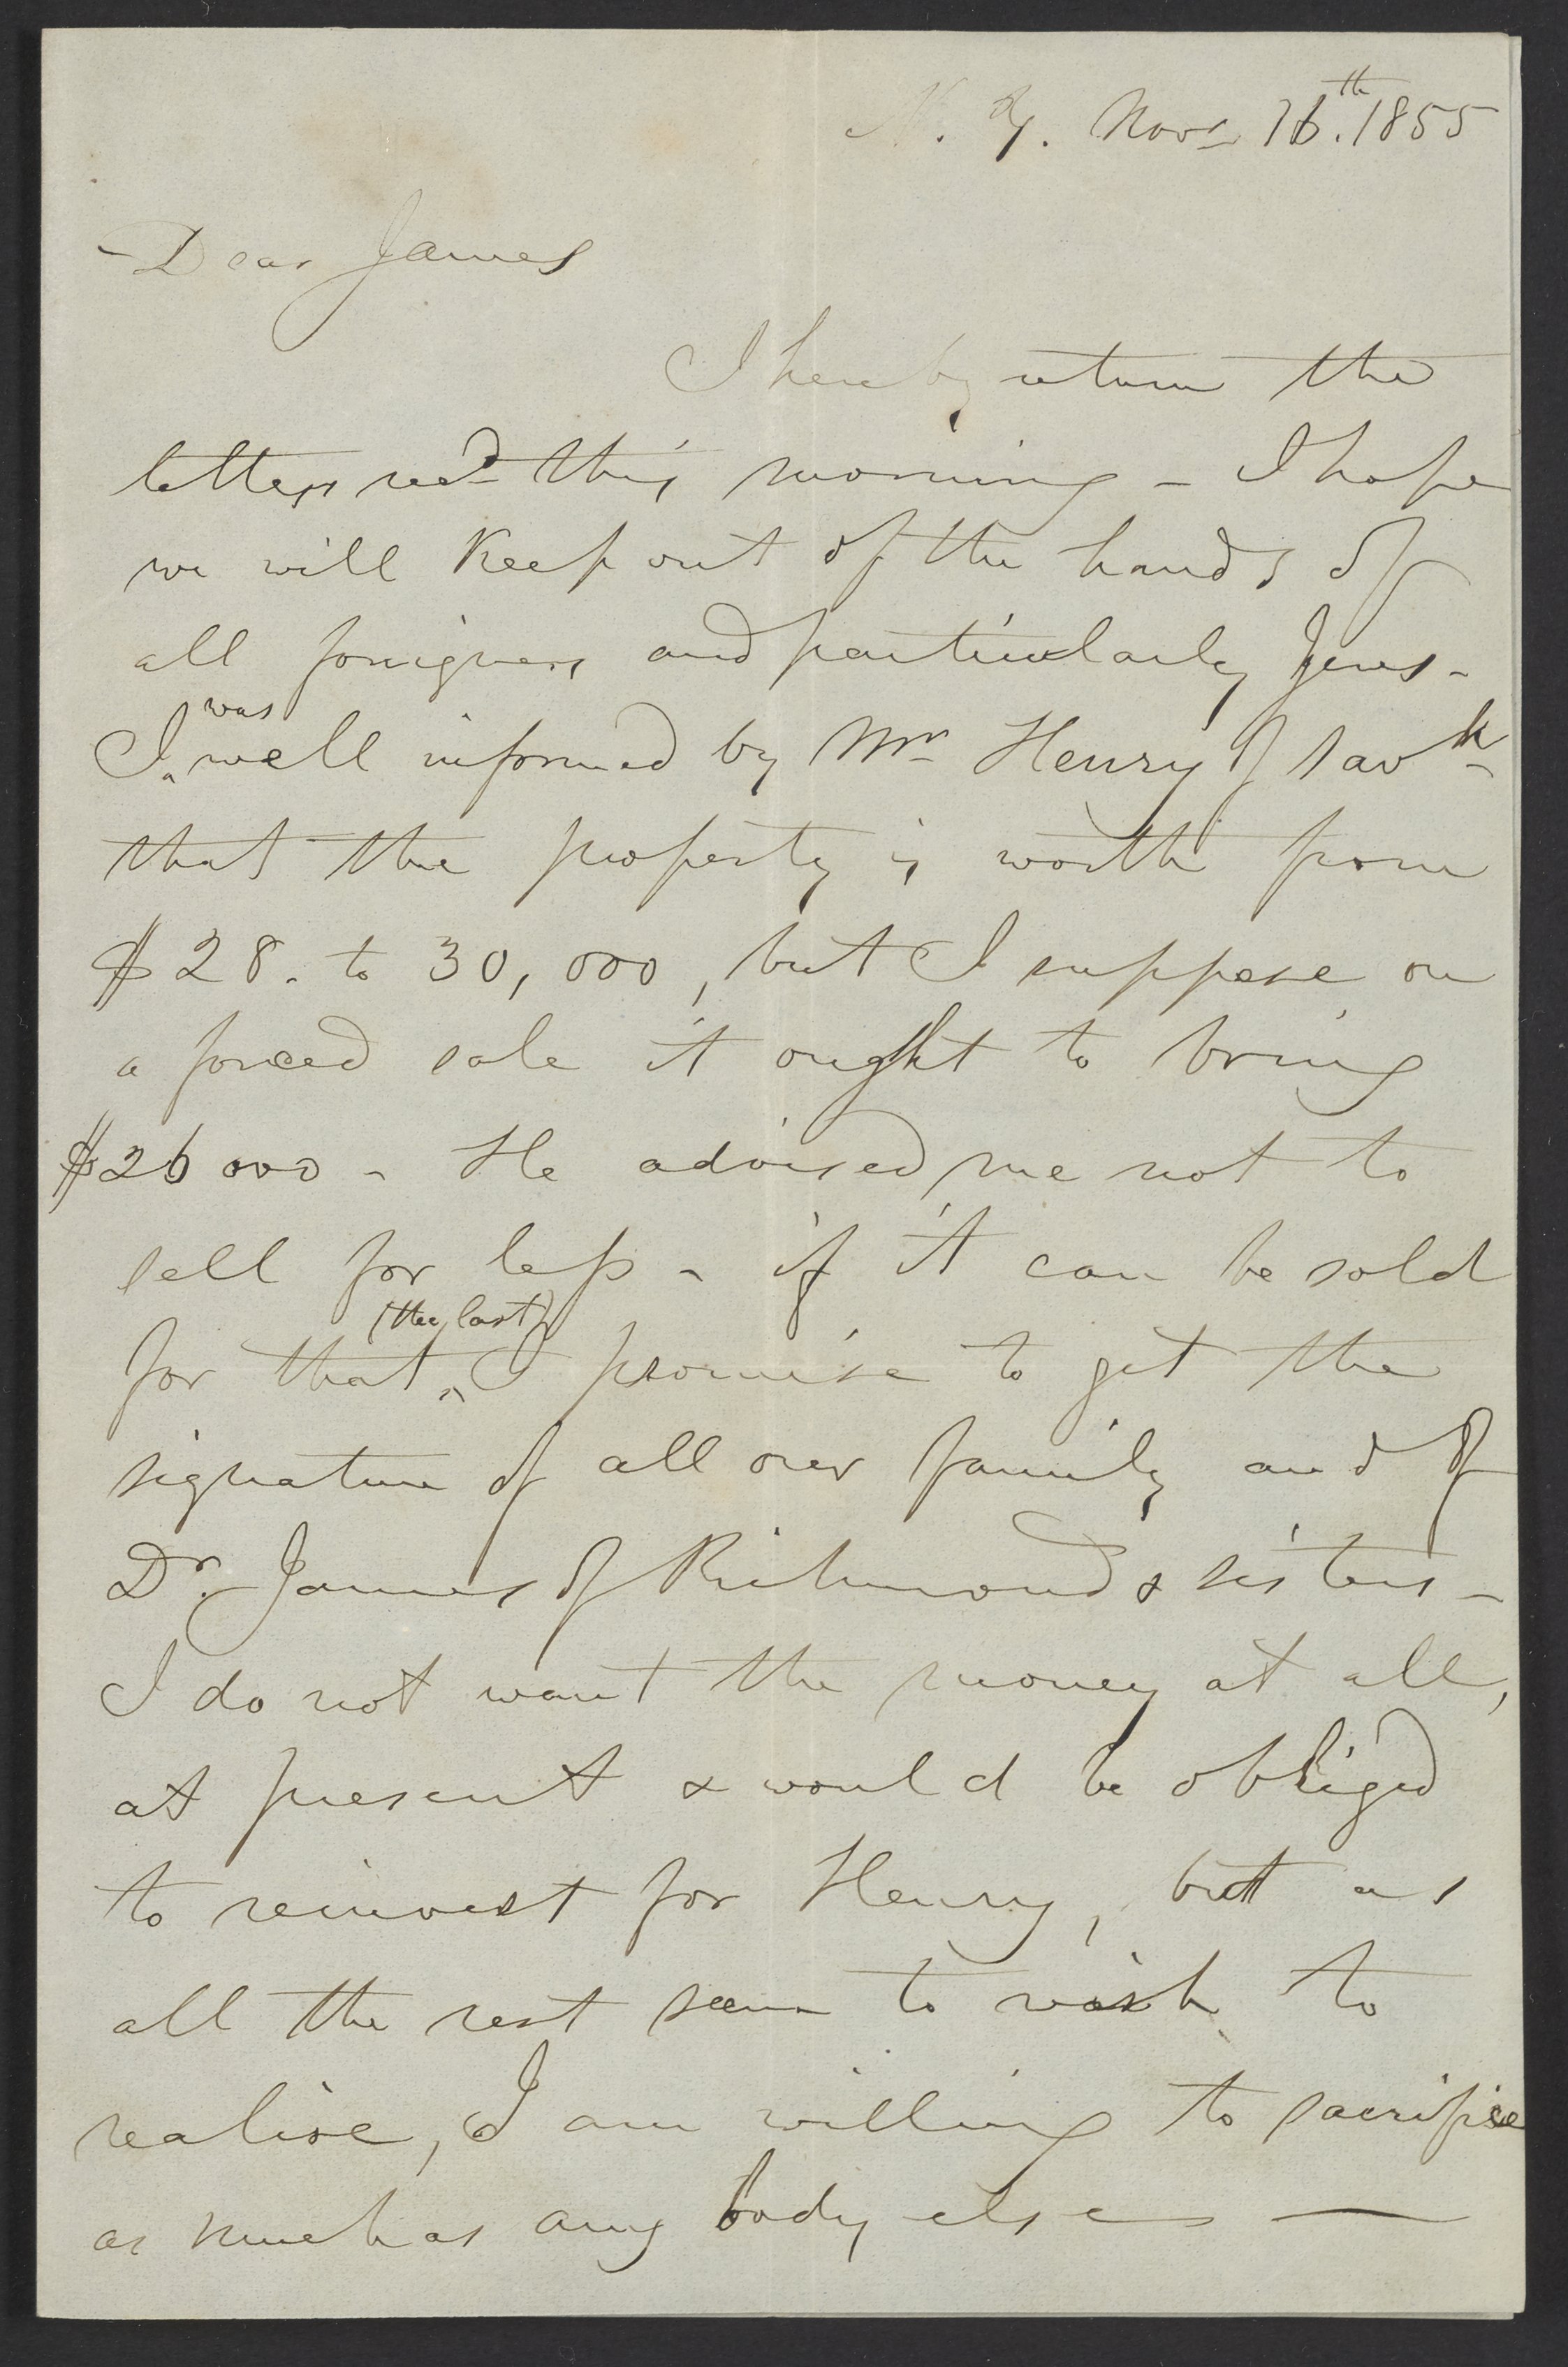 N. Y. Novr 16th. 1855
Dear James
I hereby return the
letters recd this morning - I hope
we will keep out of the hands of
all foreigners and particularly Jews -
I was well informed by Mr Henry of Savh
that the property is worth from
$28. to 30,000, but I suppose on
a forced sale it ought to bring
$26000 - He advised me not to
sell for less - if it can be sold
for that (the last) I promise to get the
signature of all our family and of
Dr. James of Richmond & sisters -
I do not want the money at all,
at present & would be obliged
to reinvest for Henry, but as
all the rest seem to wish to
realise, I am willing to sacrifice
as much as any body else —